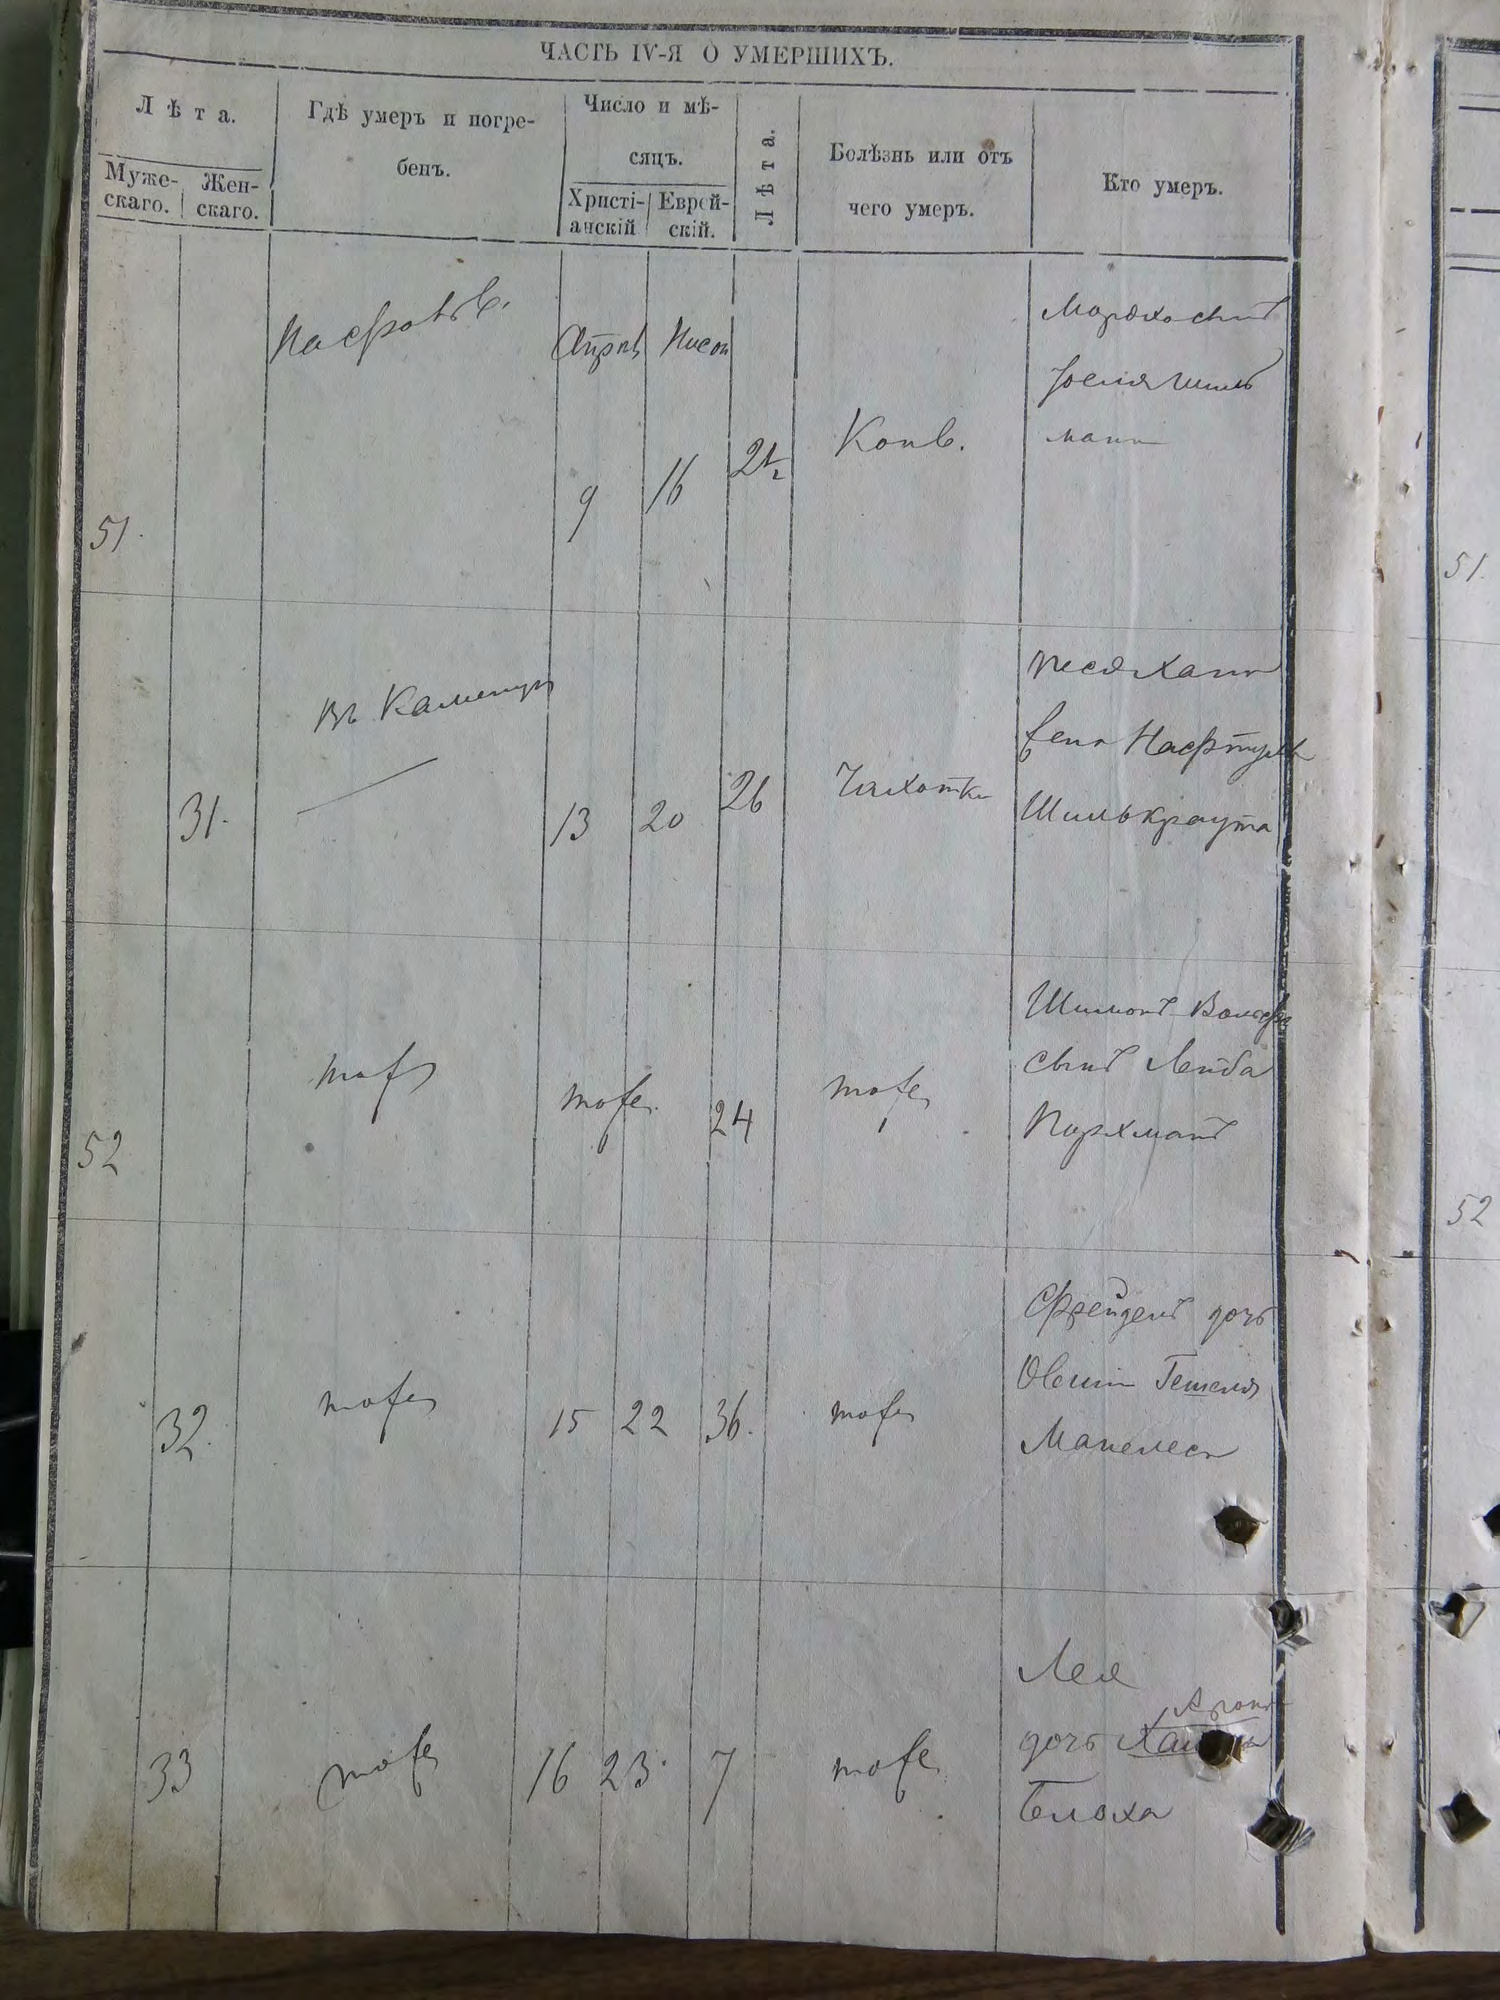 ЧАСТЬ IV-Я О УМЕРШИХЪ.
Лѣта.
Муже-
скаго.
Жен-
скаго.
Гдѣ умеръ и погре-
бенъ.
Число и мѣ-
сяцъ.
Христі-
анскій
Еврей-
скій.
Лѣта.
Болѣзнь или отъ
чего умеръ.
Кто умеръ.
51.
Апрѣль
Нисон
9
16
2½
Конв.
Мордхо сынъ
Иося Шил
манн
31.
въ Каменцѣ
13
20
26
Чахотка
Песя Хана
жена Нафтулы
Шилькраута
52
тоже
тоже
24
тоже
Шимонъ Вольфъ
сынъ Лейба
Порхманъ
32.
тоже
15
22
36.
тоже
Фрейдель дочь
Овшии Гешеля
Манелеса
33
тоже
16
23.
7
тоже
Лея
Арона
дочь
Блоха
51.
52